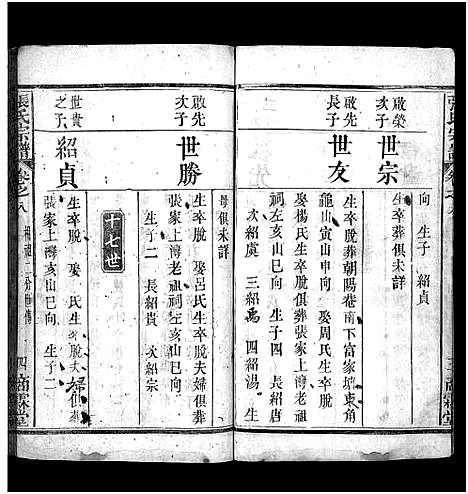 張氏宗譜 卷之八
向 生子 紹貞
啟榮
次子
世宗
生卒葬俱未詳
啟先
長子
世友
生卒脫葬朝陽巷南下富家
龜山寅山申向 娶周氏生卒
娶楊氏生卒脫葬張家上灣老祖
祠左亥山巳向 生子四 長紹唐
次紹虞 三紹禹 四紹湯 生
母俱未詳
啟先
次子
世勝
生卒脫 娶呂氏生卒脫夫婦俱葬
張家上灣老祖祠左亥山巳向
生子二 長紹貴 次紹宗
十七世
世貴
之子
紹貞
生卒脫 娶 氏生卒脫夫婦俱葬
張家上灣亥山巳向 生子二
張氏宗譜 卷之八
四